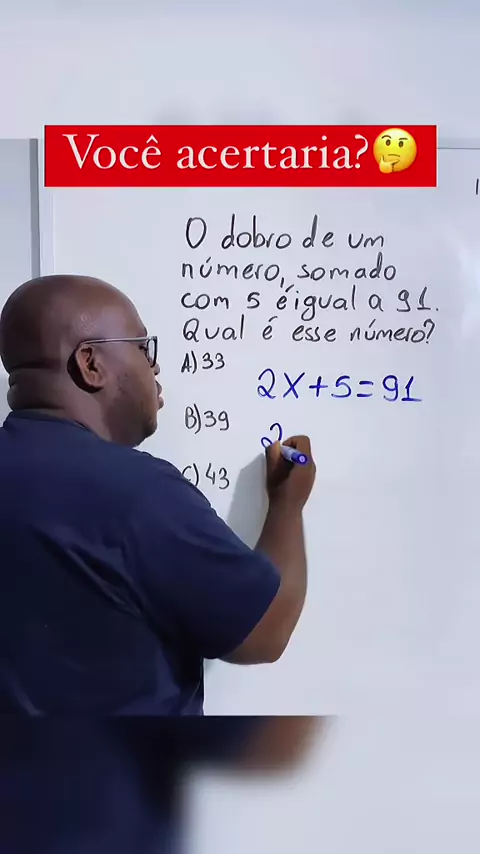 Você acertaria?🤔
O dobro de um
número, somado
com 5 é igual a 91.
Qual é esse número?
A) 33
2X+5=91
B) 39
2
C) 43